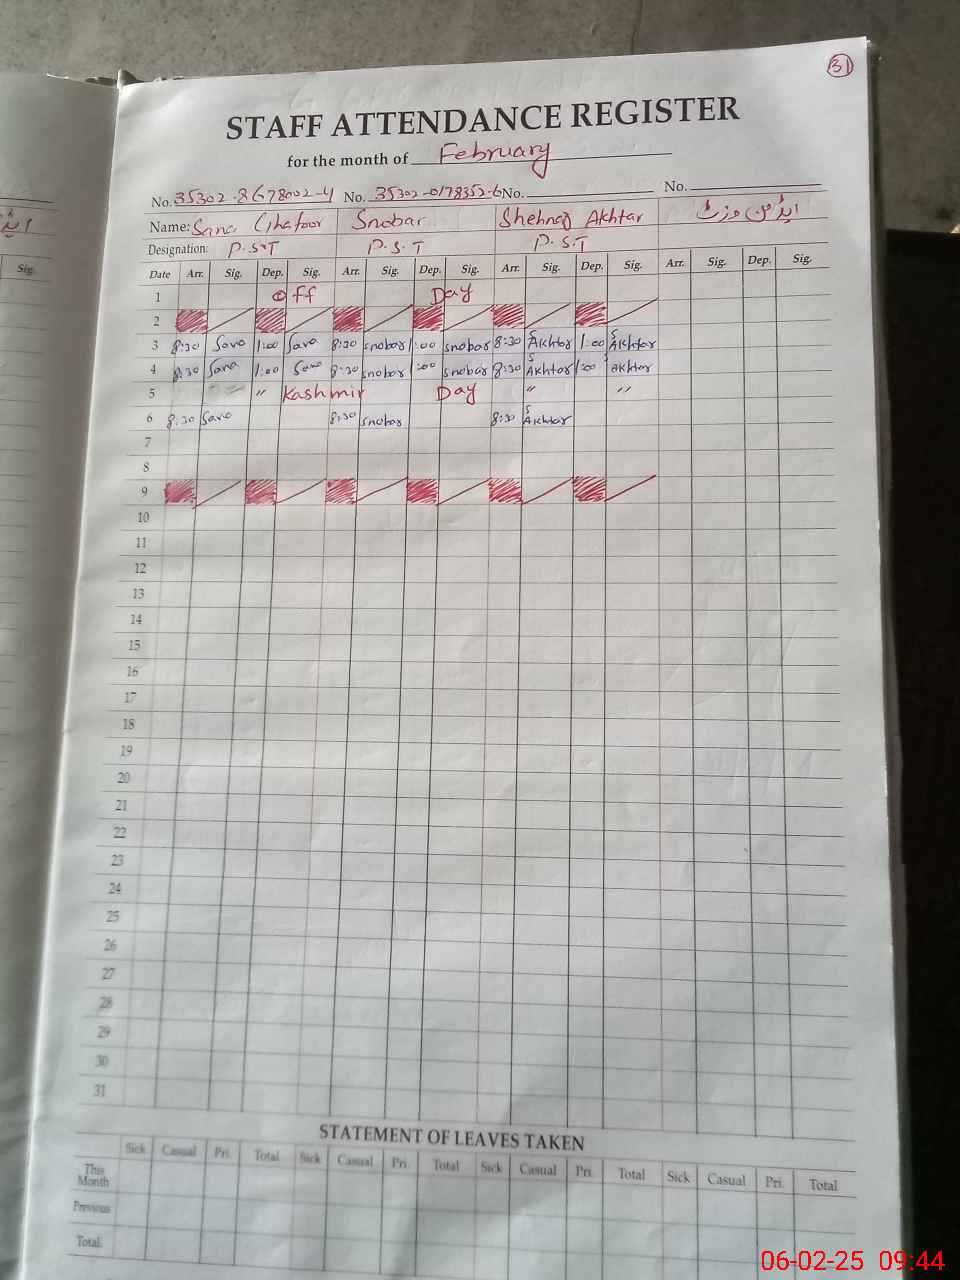 31
STAFF ATTENDANCE REGISTER
for the month of February
No. 35302-8678002-4 No. 35302-0178352-6 No. No.
Name: Sana Ghafoor Snobar Shehnaz Akhtar ایڈمن وزٹ
Designation: P.S.T P.S.T P.S.T
Sig. Date Arr. Sig. Dep. Sig. Arr. Sig. Dep. Sig. Arr. Sig. Dep. Sig. Arr. Sig. Dep. Sig.
1 Off Day
2
3 8:30 Sana 1:00 Sana 8:30 snobar 1:00 snobar 8:30 S Akhtar 1:00 S Akhtar
4 8:30 Sana 1:00 Sana 8:30 snobar 1:00 snobar 8:30 S Akhtar 1:00 S Akhtar
5 " Kashmir Day " "
6 8:30 Sana 8:30 snobar 8:30 S Akhtar
7
8
9
10
11
12
13
14
15
16
17
18
19
20
21
22
23
24
25
26
27
28
29
30
31
STATEMENT OF LEAVES TAKEN
Sick Casual Pri. Total Sick Casual Pri. Total Sick Casual Pri. Total Sick Casual Pri. Total
This Month
Previous
Total
06-02-25 09:44